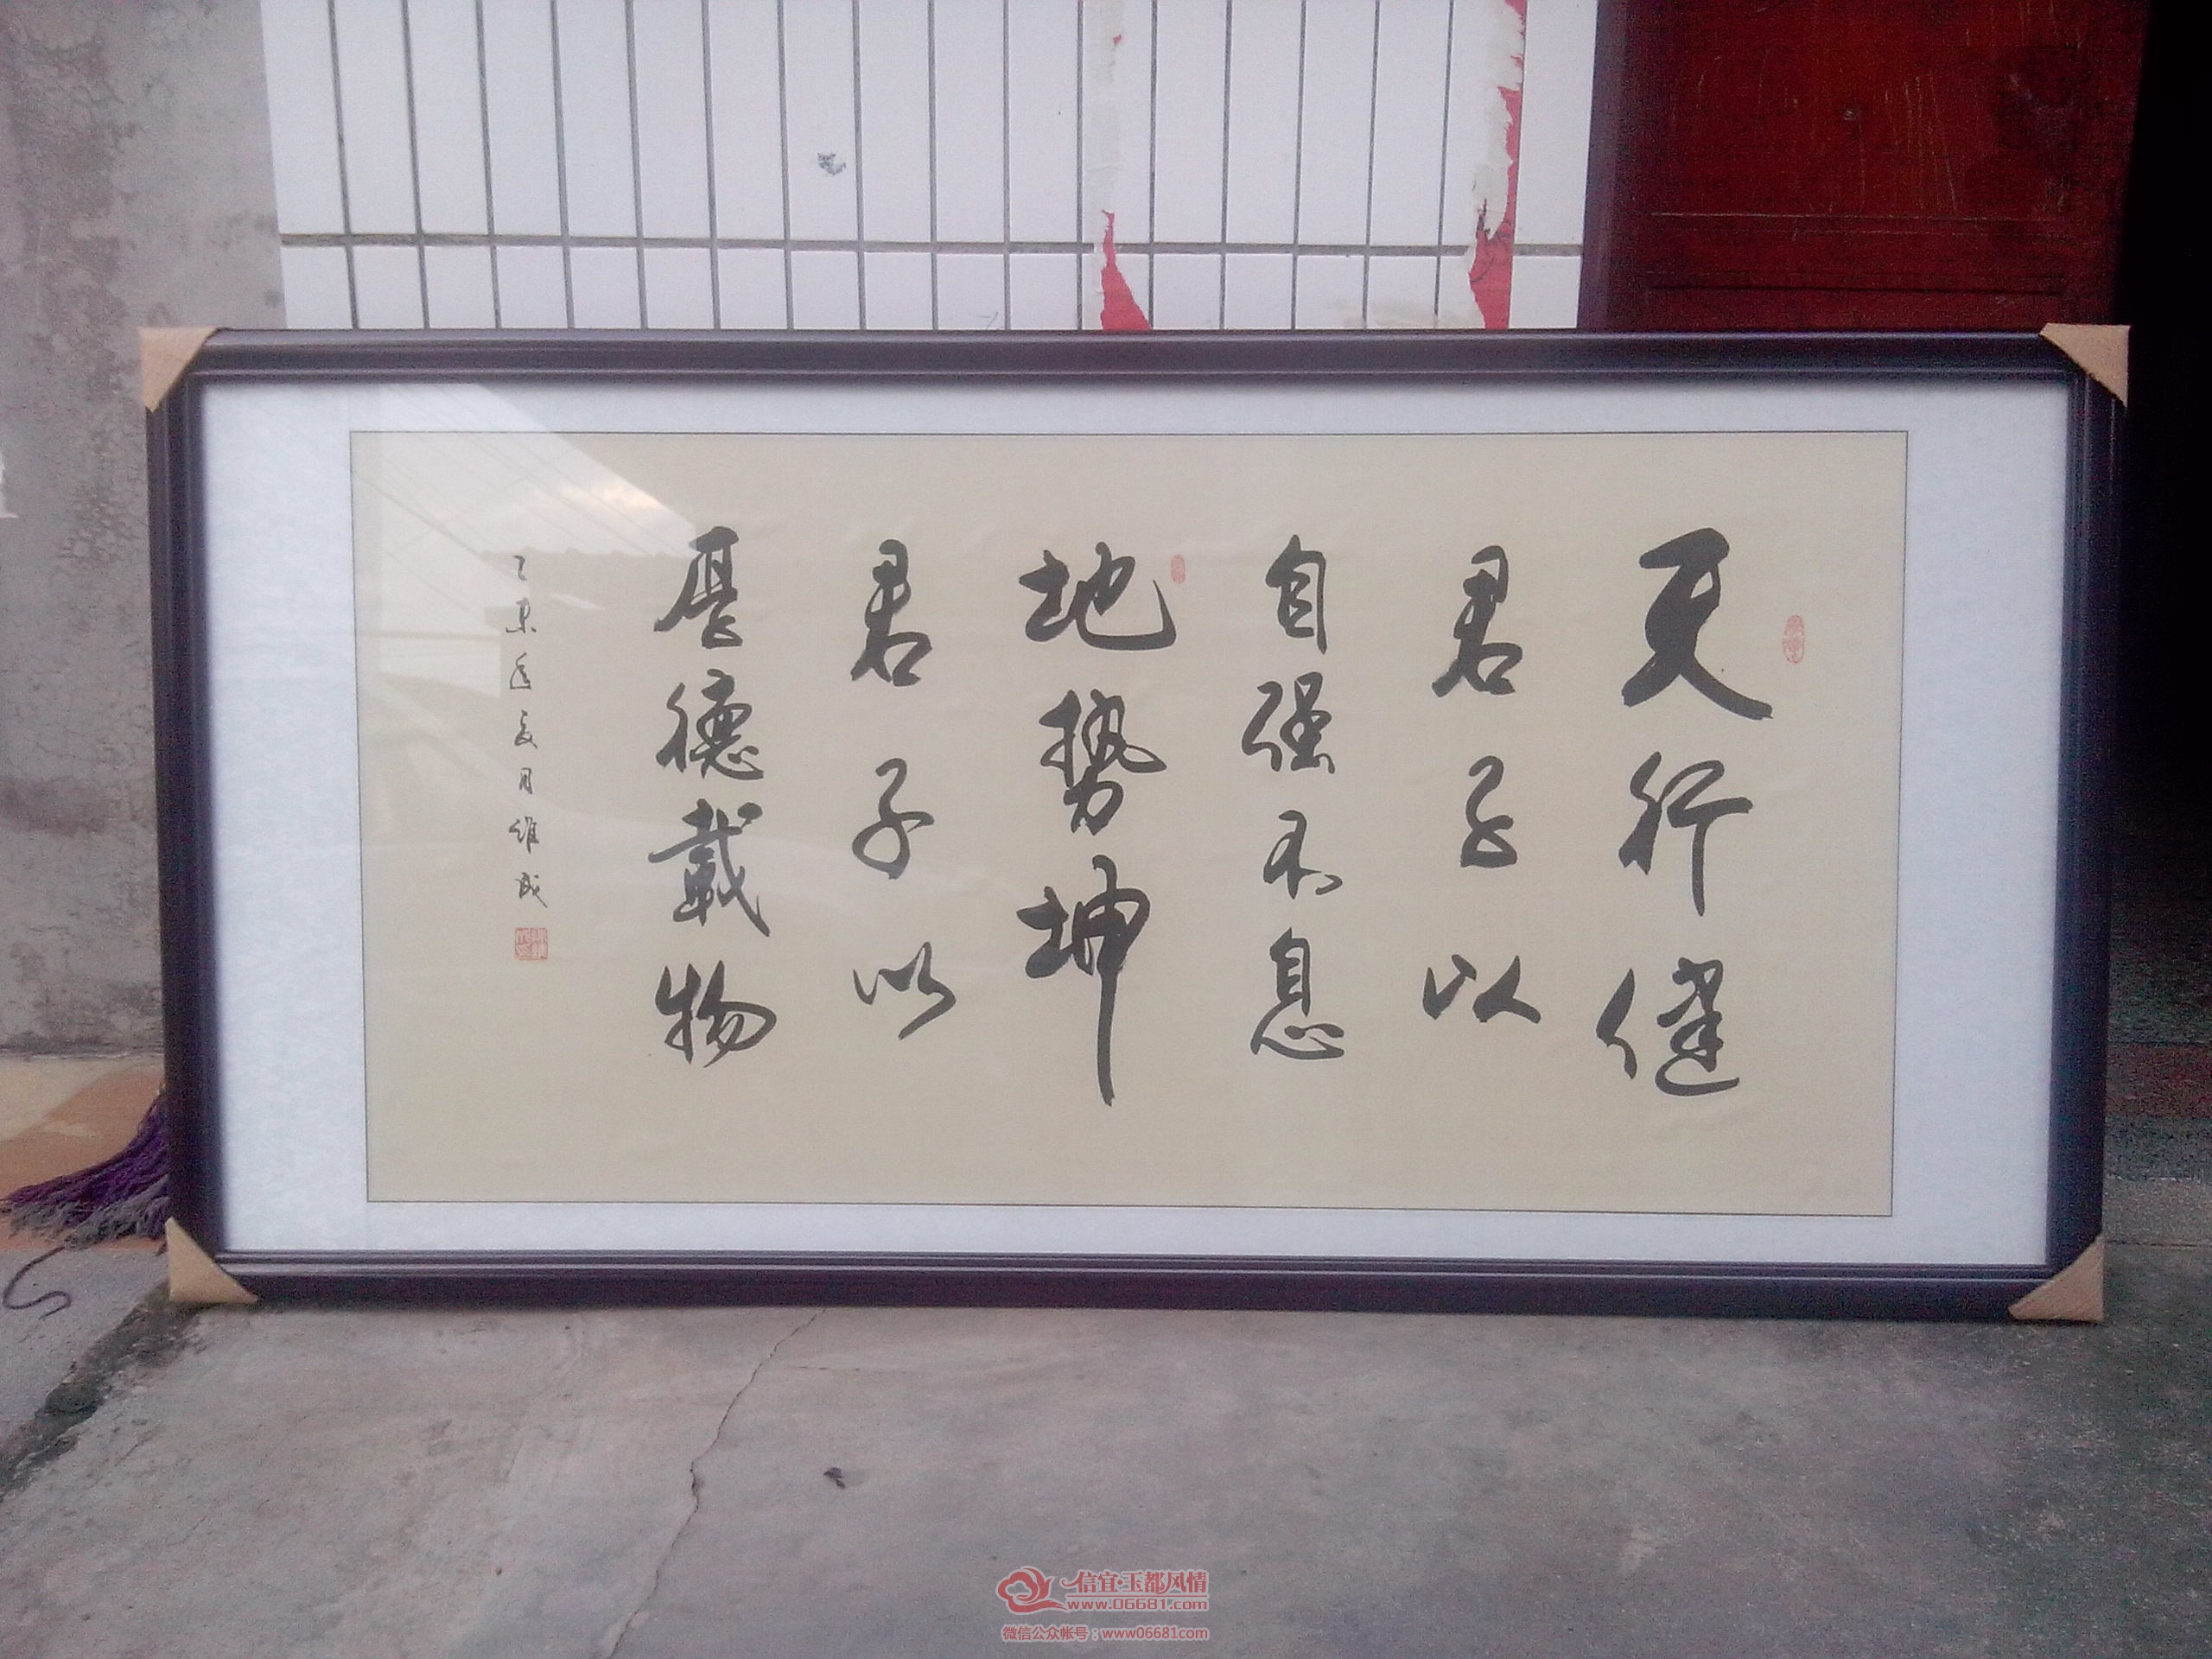 天行健
君子以
自强不息
地势坤
君子以
厚德载物
信宜·玉都风情
www.06681.com
微信公众帐号:www06681com